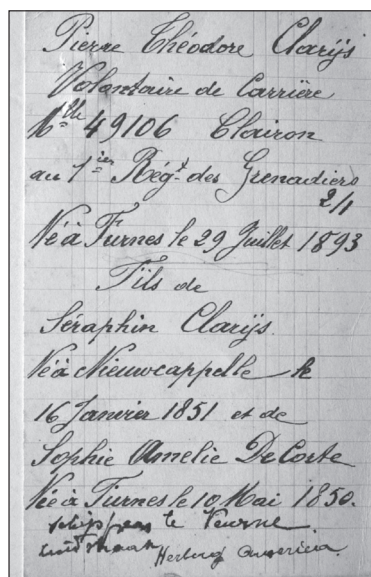 Pierre Théodore Clarijs
Volontaire de Carrière
Mlle 49106 Clairon
au 1ier Régt des Grenadiers
2/1
Né à Furnes le 29 Juillet 1893
Fils de
Séraphin Clarijs.
Né à Nieuwcappelle le
16 Janvier 1851 et de
Sophie Amelie De Corte
Née à Furnes le 10 Mai 1850.
te Veurne
Herberg America